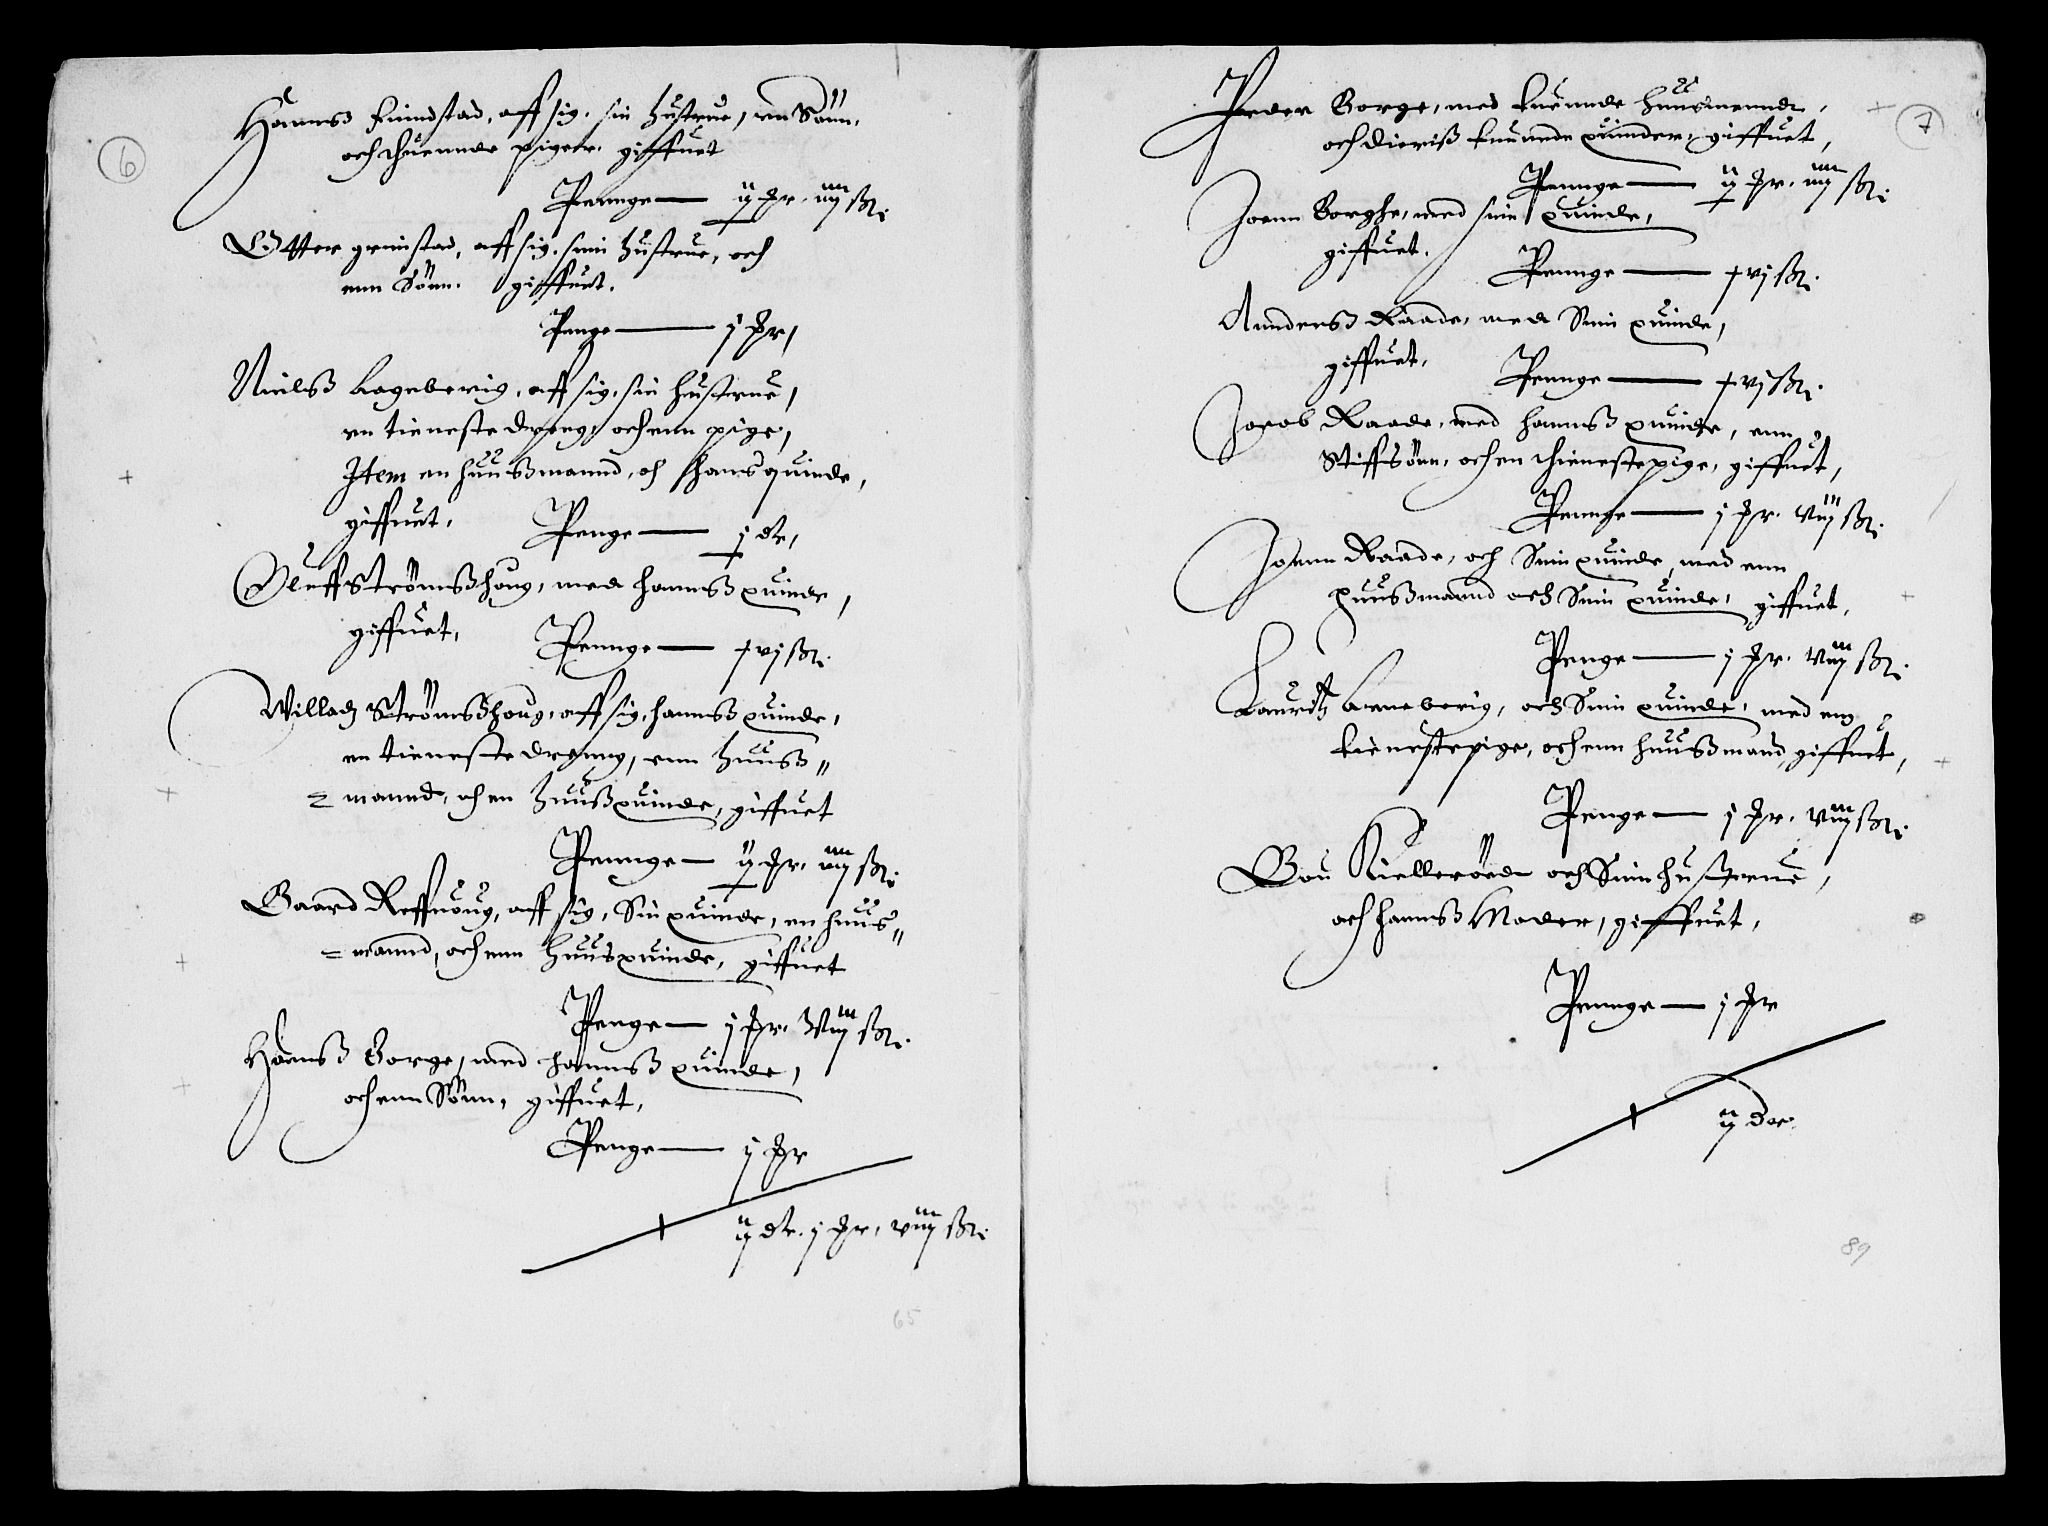 6
Hanns Finnstad, aff sig, sin hustrue, en Sönn,
och thuennde piger, giffuet
Pennge — ij Jr. iiij ß.
Otter grimstad, aff sig, sinn hustrue, och
enn Sönn. giffuet.
Penge — j Jr,
Nielss Lageberig, aff sig, sin hustrue,
en tieneste dreng, och enn pige,
Item en huussmannd, och hans quinde,
giffuet. Penge — j dr,
Oluff Strömsshoug, med hannss quinde,
giffuet, Pennge — xvj ß.
Willadz Strömsshoug, aff sig, hannss quinde,
en tieneste drenng, enn huuss
mannd, och en huussquinde, giffuet
Pennge — ij Jr. iiij ß.
Gaard Reffhoug, aff sig, Sin quinde, en huus
mannd, och enn huusquinde, giffuet
Penge — j Jr. Viij ß.
Hanss Borge, med hannss quinde,
och enn Sönn, giffuet,
Penge — j Jr
ij dr. j Jr. viij ß.
65
7
Peder Borge, med tuennde huusmennd,
och dieriss tuende quinder, giffuet,
Pennge — ij Jr. iiij ß.
Joenn Borghe, med sinn quinde,
giffuet. Pennge — xvj ß.
Annderss Raade, med Sinn quinde,
giffuet, Pennge — xvj ß.
Jacob Raade, med hannss quinde, enn
Stiffsönn, och en thieneste pige, giffuet,
Pennge — j Jr. viij ß.
Joenn Raade, och Sinn quinde, med enn
huussmannd och Sinn quinde, giffuet,
Penge — j Jr. viij ß.
Lauritz Arneberig, och Sinn quinde, med en
tienestepige, och enn huussmand, giffuet,
Penge — j Jr. viij ß.
Gou Kielleröed och Sinn hustrue,
och hannss Moder, giffuet,
Pennge — j Jr
ij dr.
89